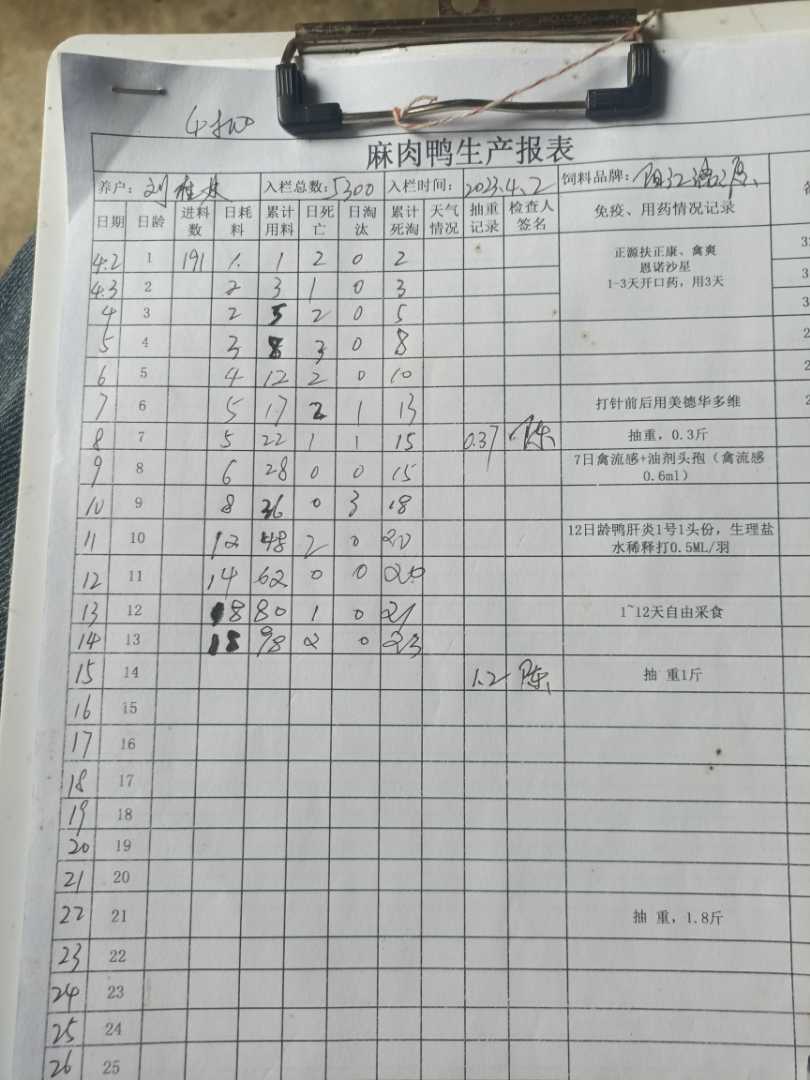 麻肉鸭生产报表
养户： 入栏总数：5300 入栏时间：2023.4.2 饲料品牌：
日期 日龄 进料数 日耗料 累计用料 日死亡 日淘汰 累计死淘 天气情况 抽重记录 检查人签名 免疫、用药情况记录
4.2 1 191 1 1 2 0 2 正源扶正康、禽爽
恩诺沙星
1-3天开口药，用3天
4.3 2 2 3 1 0 3
4 3 2 5 2 0 5
5 4 3 8 3 0 8
6 5 4 12 2 0 10
7 6 5 17 2 1 13 打针前后用美德华多维
8 7 5 22 1 1 15 0.37 陈 抽重，0.3斤
9 8 6 28 0 0 15 7日禽流感+油剂头孢（禽流感
0.6ml）
10 9 8 36 0 3 18
11 10 12 48 2 0 20 12日龄鸭肝炎1号1头份，生理盐
水稀释打0.5ML/羽
12 11 14 62 0 0 20
13 12 18 80 1 0 21 1~12天自由采食
14 13 18 98 2 0 23
15 14 1.2 陈 抽 重1斤
16 15
17 16
18 17
19 18
20 19
21 20
22 21 抽 重，1.8斤
23 22
24 23
25 24
26 25